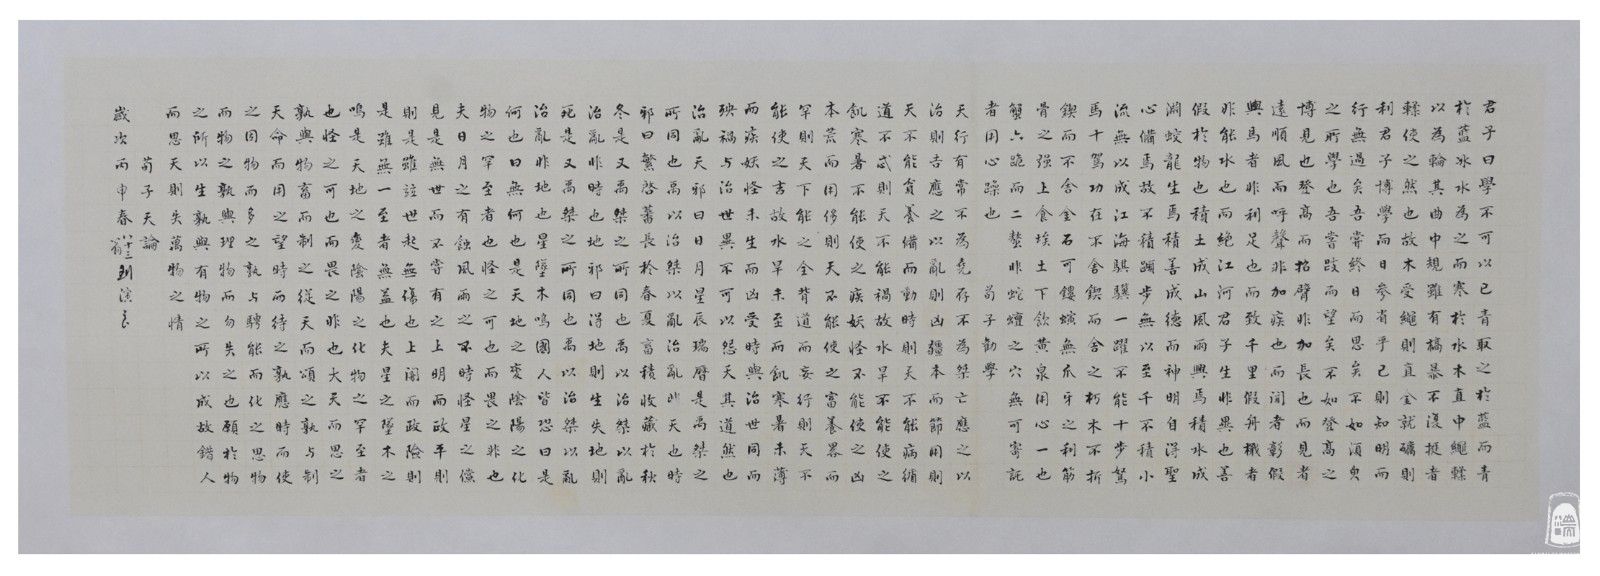 君子曰學不可以已青取之於藍而青
於藍冰水為之而寒於水木直中繩輮
以為輪其曲中規雖有槁暴不復挺者
輮使之然也故木受繩則直金就礪則
利君子博學而日參省乎己則知明而
行無過矣吾嘗終日而思矣不如須臾
之所學也吾嘗跂而望矣不如登高之
博見也登高而招臂非加長也而見者
遠順風而呼聲非加疾也而聞者彰假
輿馬者非利足也而致千里假舟檝者
非能水也而絕江河君子生非異也善
假於物也積土成山風雨興焉積水成
淵蛟龍生焉積善成德而神明自得聖
心備焉故不積蹞步無以至千不積小
流無以成江海騏驥一躍不能十步駑
馬十駕功在不舍鍥而舍之朽木不折
鍥而不舍金石可鏤螾無爪牙之利筋
骨之强上食埃土下飲黄泉用心一也
蟹六跪而二螯非蛇蟺之穴無可寄託
者用心躁也 荀子勸學
天行有常不為堯存不為桀亡應之以
治則吉應之以亂則凶彊本而節用則
天不能貧養備而動時則天不能病循
道不忒則天不能禍故水旱不能使之
飢寒暑不能使之疾妖怪不能使之凶
本荒而用侈則天不能使之富養畧而
罕則天下能之全背道而妄行則天不
能使之吉故水旱未至而飢寒暑未薄
而疾妖怪未生而凶受時與治世同而
殃禍与治世異不可以怨天其道然也
治亂天邪曰日月星辰瑞曆是禹桀之
所同也禹以治桀以亂治亂非天也時
邪曰繁啓蕃長於春夏畜積收藏於秋
冬是又禹桀之所同也禹以治桀以亂
治亂非時也地邪曰得地則生失地則
死是又禹桀之所同也禹以治桀以亂
治亂非地也星墜木鳴國人皆恐曰是
何也曰無何也是天地之变陰陽之化
物之罕至者也怪之可也而畏之非也
夫日月之有蝕風雨之不時怪星之儻
見是無世而不嘗有之上明而政平則
則是雖竝世起無傷也上闇而政險則
是雖無一至者無益也夫星之墜木之
鳴是天地之變陰陽之化物之罕至者
也怪之可也而畏之非也大天而思之
孰與物畜而制之從天而頌之孰与制
天命而用之望時而待之孰應時而使
之因物而多之孰与騁能而化之思物
而物之孰與理物而勿失之也願於物
之所以生孰與有物之所以成故錯人
而思天則失萬物之情
荀子天論
歲次丙申春八十三翁